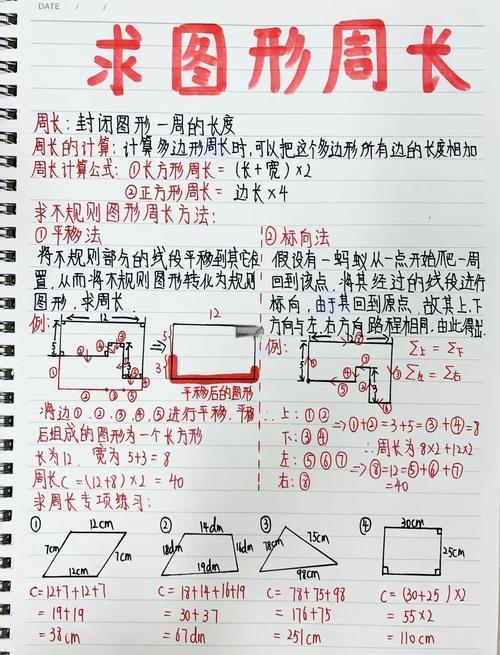 DATE / /
求图形周长
周长：封闭图形一周的长度
周长的计算：计算多边形周长时，可以把这个多边形所有边的长度相加
周长计算公式：①长方形周长=（长+宽）×2
②正方形周长= 边长×4
求不规则图形周长方法：
①平移法
将不规则部分的线段平移到其它位
置，从而将不规则图形转化为规则
图形，求周长
例：
12
5
3
12
5
3
平移后的图形
将边①、②、③、④、⑤进行平移，平移
后组成的图形为一个长方形
长为12，宽为5+3=8
周长C=（12+8）×2 = 40
②标向法
假设有一蚂蚁从一点开始爬一周
回到该点，将其经过的线段进行
标向，由于其回到原点，故其上、下
方向与左、右方向路程相同，由此得出：
例：
12
5
3
Σ上=Σ下
Σ左=Σ右
∴上：①②
下：③④
左：⑤⑥⑦
右：⑧
⇒①+②=3+5=③+④=8
∴周长为8×2+12×2
⇒⑧=12=⑤+⑥+⑦
=40
求周长专项练习：
①
12cm
7cm
7cm
12cm
C=12+7+12+7
=19+19
=38cm
②
14dm
18dm
16dm
19dm
C=18+14+16+19
=30+37
=67dm
③
78cm
75cm
98cm
C=78+75+98
=176+75
=251cm
④
30cm
25cm
C=（30+25）×2
=55×2
=110cm